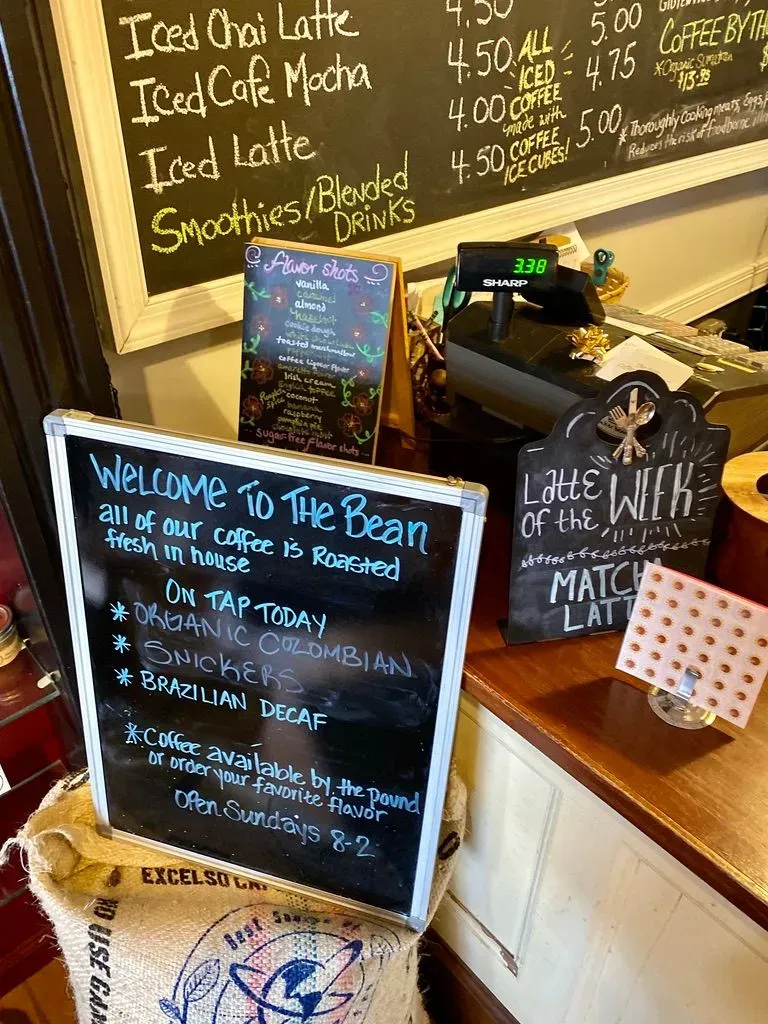 Iced Chai Latte 4.50 5.00
Iced Cafe Mocha 4.50 4.75
Iced Latte 4.00 5.00
4.50
Smoothies/Blended
Drinks
ALL
ICED
COFFEE
made with
COFFEE
ICE CUBES!
COFFEE BY TH
*Organic Sumatran
$13.95
*Thoroughly Cooking meats, Eggs,
Reduces the risk of foodborne
Flavor shots
vanilla
caramel
almond
hazelnut
cookie dough
toasted marshmallow
coffee liqueur flavor
Irish cream
English toffee
coconut
banana
raspberry
pumpkin pie
Pumpkin
Spice
Sugar-free Flavor shots...
3.38
SHARP
Latte
of the WEEK
MATCHA
LATT
Welcome To The Bean
all of our coffee is Roasted
fresh in house
ON TAP TODAY
* ORGANIC COLOMBIAN
* SNICKERS
* BRAZILIAN DECAF
*Coffee available by the pound
or order your favorite flavor
Open Sundays 8-2
EXCELSO
NO USE GA